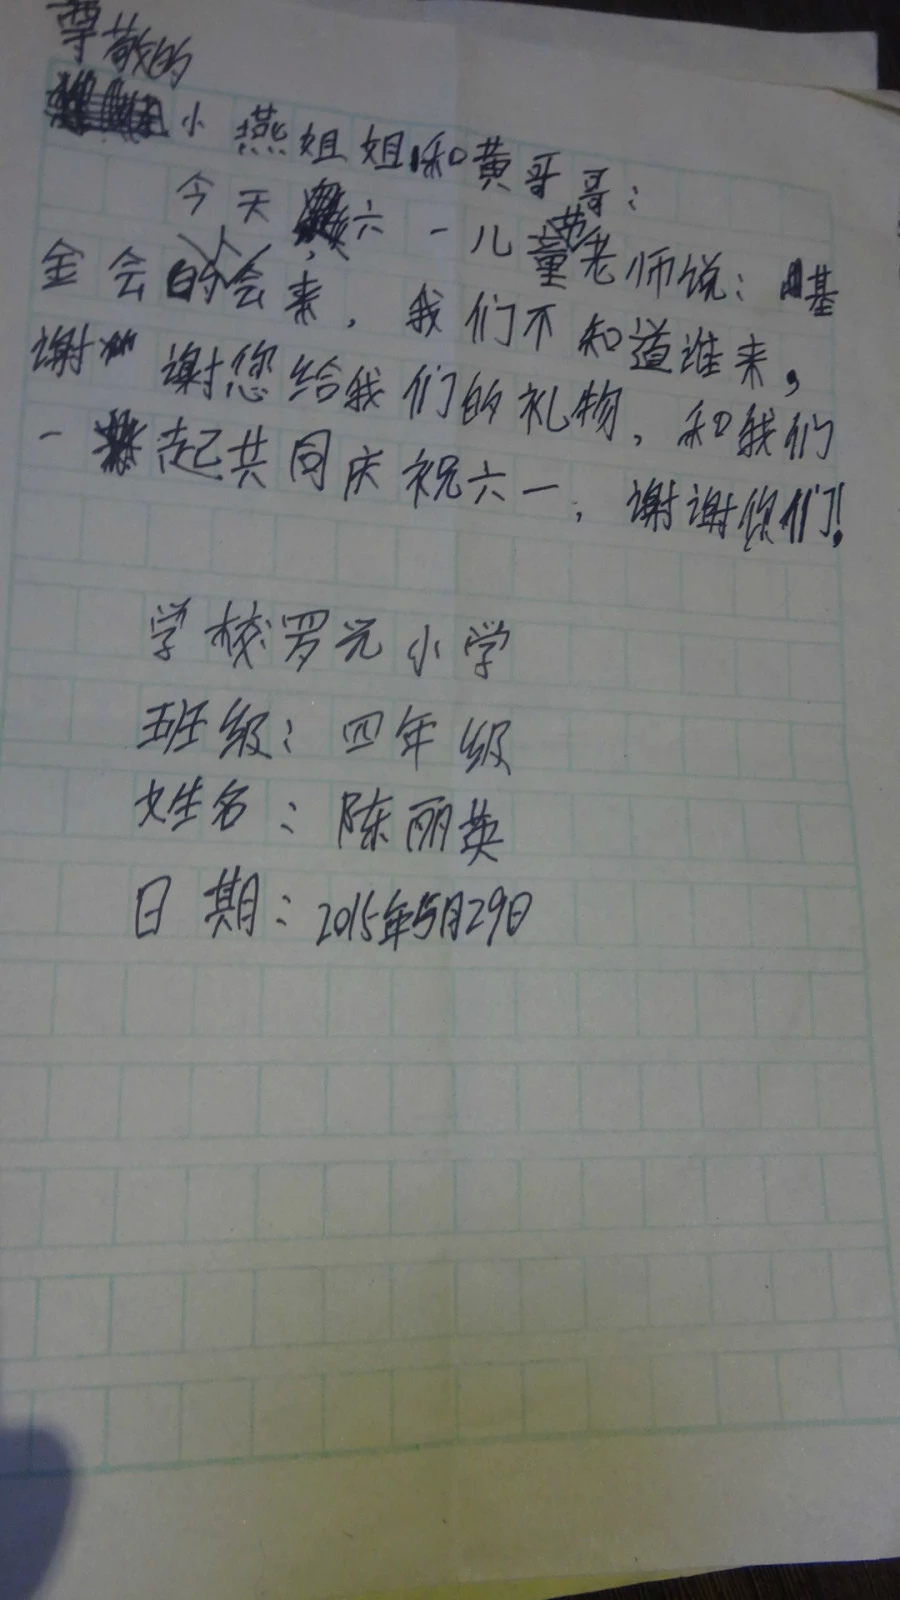 尊敬的
小燕姐姐和黄哥哥:
今天,六一儿童节老师说:基
金会的人会来,我们不知道谁来,
谢谢您给我们的礼物,和我们
一起共同庆祝六一,谢谢你们!
学校罗元小学
班级:四年级
姓名:陈丽英
日期:2015年5月29日